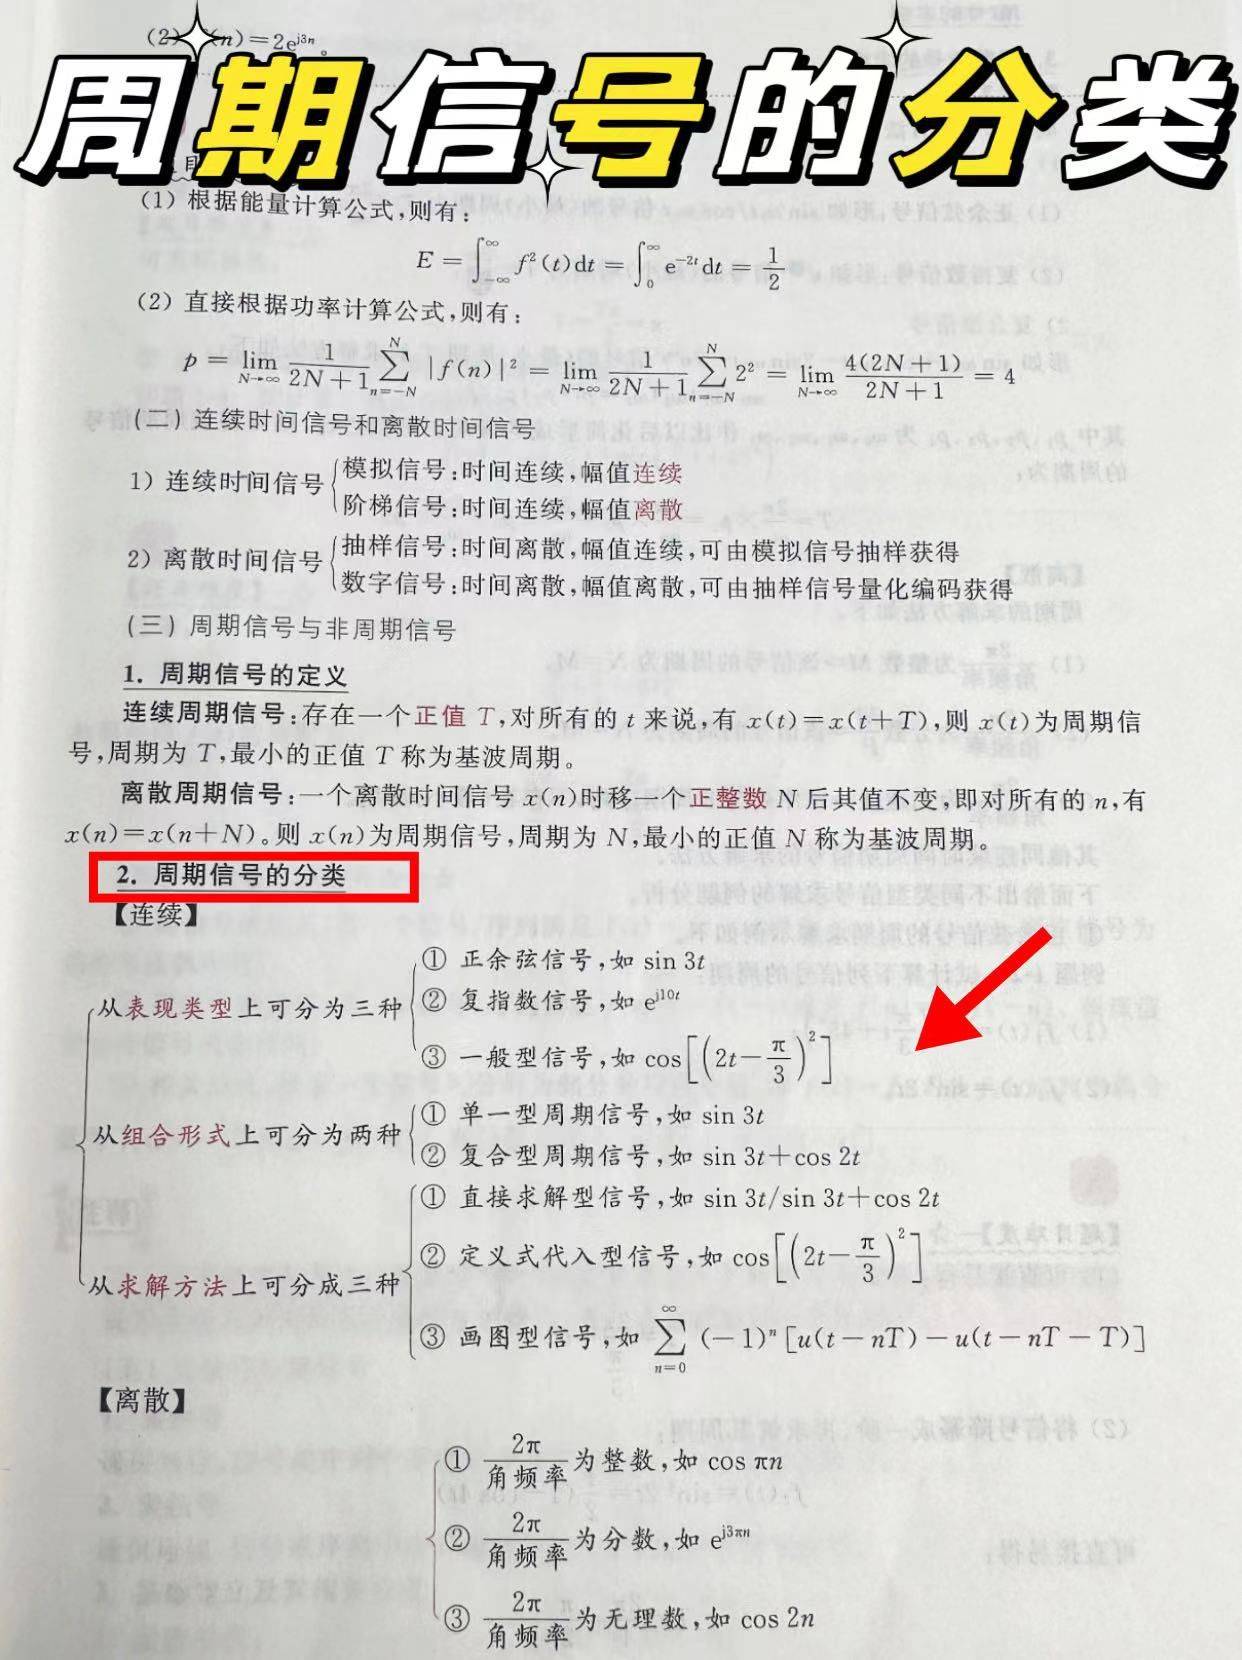 (2) (n)=2e^{j3n}。
周期信号的分类
(1) 根据能量计算公式,则有:
E = ∫_{-∞}^{∞} f²(t)dt = ∫_{0}^{∞} e^{-2t}dt = 1/2
(2) 直接根据功率计算公式,则有:
p = lim_{N→∞} 1/(2N+1) ∑_{n=-N}^{N} |f(n)|² = lim_{N→∞} 1/(2N+1) ∑_{n=-N}^{N} 2² = lim_{N→∞} 4(2N+1)/(2N+1) = 4
(二) 连续时间信号和离散时间信号
1) 连续时间信号
模拟信号:时间连续,幅值连续
阶梯信号:时间连续,幅值离散
2) 离散时间信号
抽样信号:时间离散,幅值连续,可由模拟信号抽样获得
数字信号:时间离散,幅值离散,可由抽样信号量化编码获得
(三) 周期信号与非周期信号
1. 周期信号的定义
连续周期信号:存在一个正值 T,对所有的 t 来说,有 x(t)=x(t+T),则 x(t)为周期信
号,周期为 T,最小的正值 T 称为基波周期。
离散周期信号:一个离散时间信号 x(n)时移一个正整数 N 后其值不变,即对所有的 n,有
x(n)=x(n+N)。则 x(n)为周期信号,周期为 N,最小的正值 N 称为基波周期。
2. 周期信号的分类
【连续】
从表现类型上可分为三种
① 正余弦信号,如 sin 3t
② 复指数信号,如 e^{j10t}
③ 一般型信号,如 cos[(2t-π/3)²]
从组合形式上可分为两种
① 单一型周期信号,如 sin 3t
② 复合型周期信号,如 sin 3t+cos 2t
从求解方法上可分成三种
① 直接求解型信号,如 sin 3t/sin 3t+cos 2t
② 定义式代入型信号,如 cos[(2t-π/3)²]
③ 画图型信号,如 ∑_{n=0}^{∞} (-1)ⁿ[u(t-nT)-u(t-nT-T)]
【离散】
① 2π/角频率 为整数,如 cos πn
② 2π/角频率 为分数,如 e^{j3πn}
③ 2π/角频率 为无理数,如 cos 2n